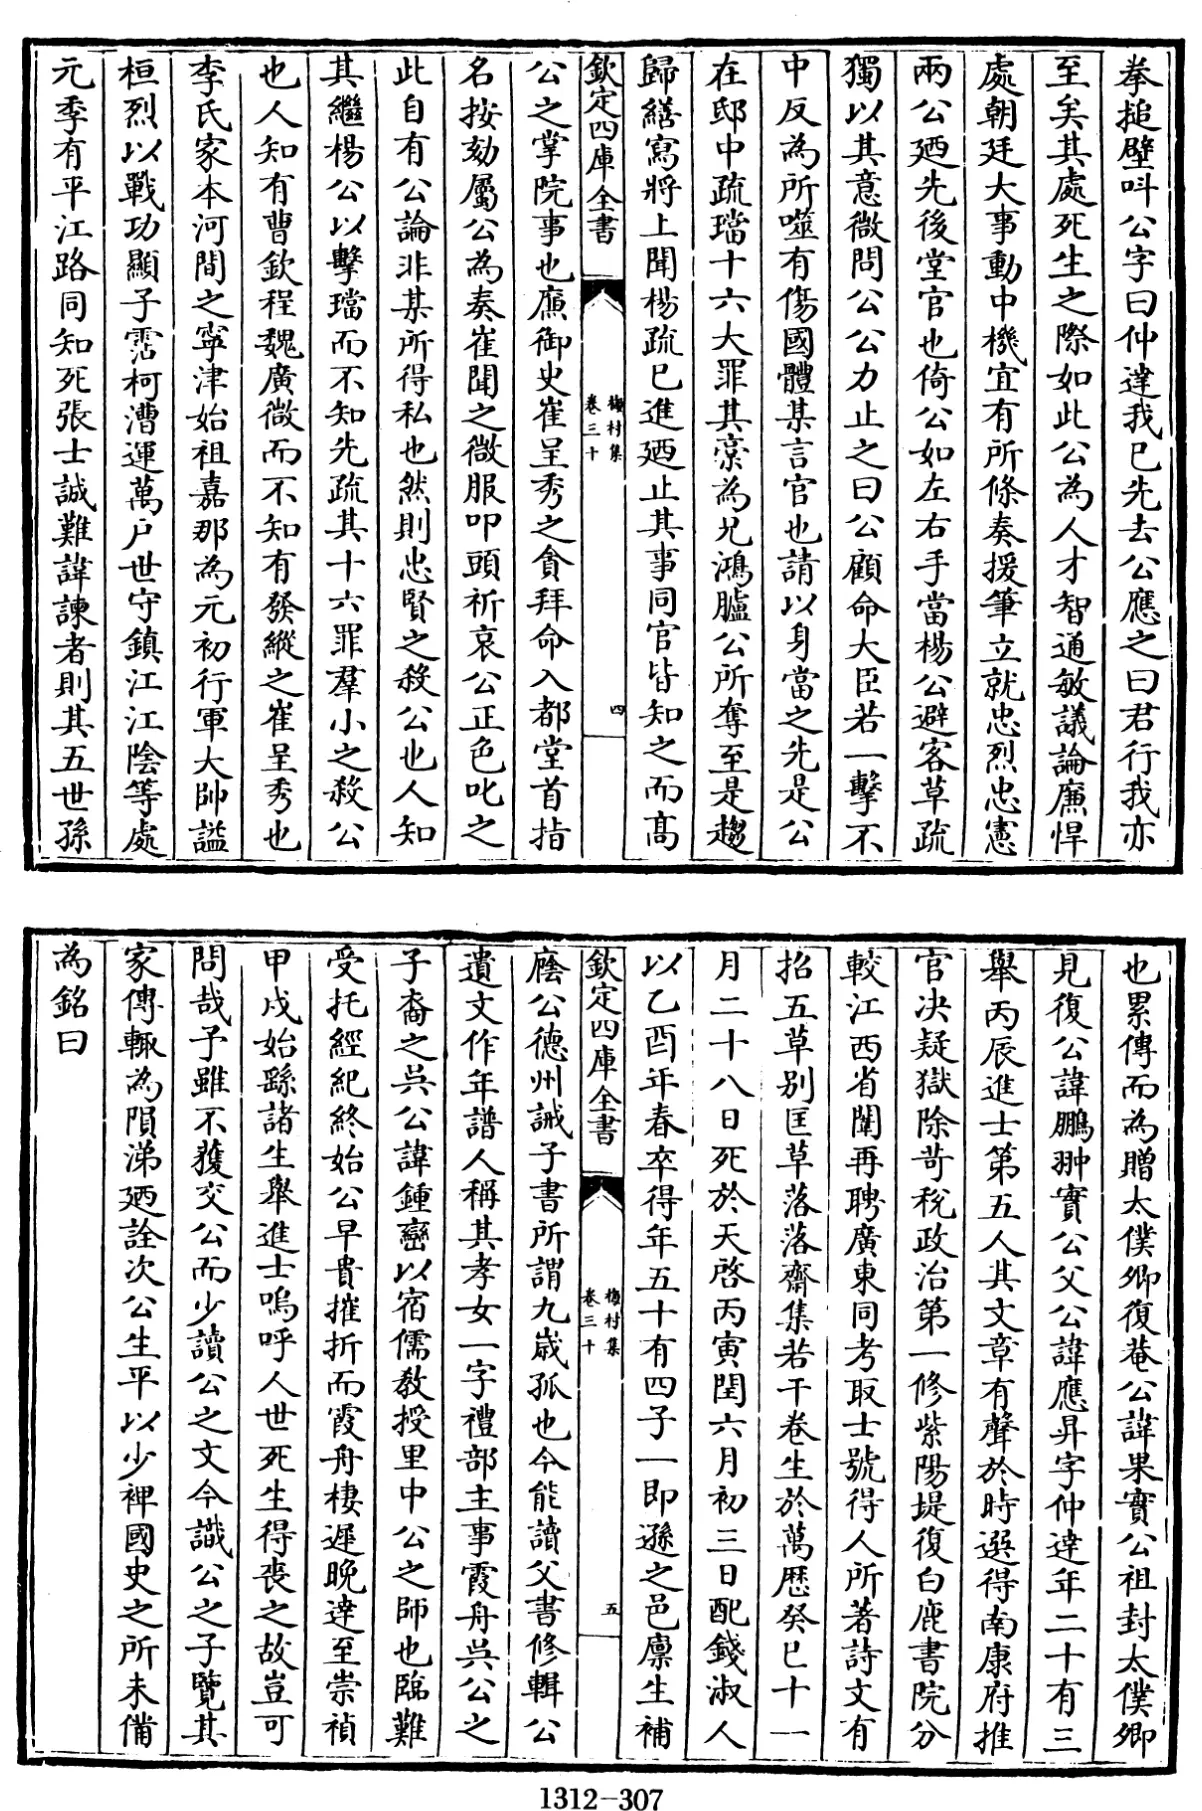 拳搥壁呌公字曰仲達我已先去公應之曰君行我亦
至矣其處死生之際如此公為人才智通敏議論廉悍
處朝廷大事動中機宜有所條奏援筆立就忠烈忠憲
兩公廼先後堂官也倚公如左右手當楊公避客草疏
獨以其意微問公公力止之曰公顧命大臣若一擊不
中反為所噬有傷國體某言官也請以身當之先是公
在邸中疏璫十六大罪其稾為兄鴻臚公所奪至是趨
歸繕寫將上聞楊疏已進廼止其事同官皆知之而髙
欽定四庫全書
梅村集
卷三十
四
公之掌院事也廉御史崔呈秀之貪拜命入都堂首指
名按劾屬公為奏崔聞之微服叩頭祈哀公正色叱之
此自有公論非某所得私也然則忠賢之殺公也人知
其繼楊公以擊璫而不知先疏其十六罪羣小之殺公
也人知有曹欽程魏廣微而不知有發縱之崔呈秀也
李氏家本河間之寧津始祖嘉那為元初行軍大帥諡
桓烈以戰功顯子霑柯漕運萬户世守鎮江江陰等處
元季有平江路同知死張士誠難諱諫者則其五世孫
也累傳而為贈太僕卿復菴公諱果實公祖封太僕卿
見復公諱鵬翀實公父公諱應昇字仲達年二十有三
舉丙辰進士第五人其文章有聲於時選得南康府推
官决疑獄除苛稅政治第一修紫陽堤復白鹿書院分
較江西省闈再聘廣東同考取士號得人所著詩文有
招五草别匡草落落齋集若干卷生於萬歴癸巳十一
月二十八日死於天啓丙寅閏六月初三日配錢淑人
以乙酉年春卒得年五十有四子一即遜之邑廪生補
欽定四庫全書
梅村集
卷三十
五
廕公德州誡子書所謂九歲孤也今能讀父書修輯公
遺文作年譜人稱其孝女一字禮部主事霞舟吳公之
子裔之吳公諱鍾巒以宿儒教授里中公之師也臨難
受托經紀終始公早貴摧折而霞舟棲遲晚達至崇禎
甲戌始繇諸生舉進士嗚呼人世死生得喪之故豈可
問哉予雖不獲交公而少讀公之文今識公之子覽其
家傳輒為隕涕廼詮次公生平以少裨國史之所未備
為銘曰
1312-307